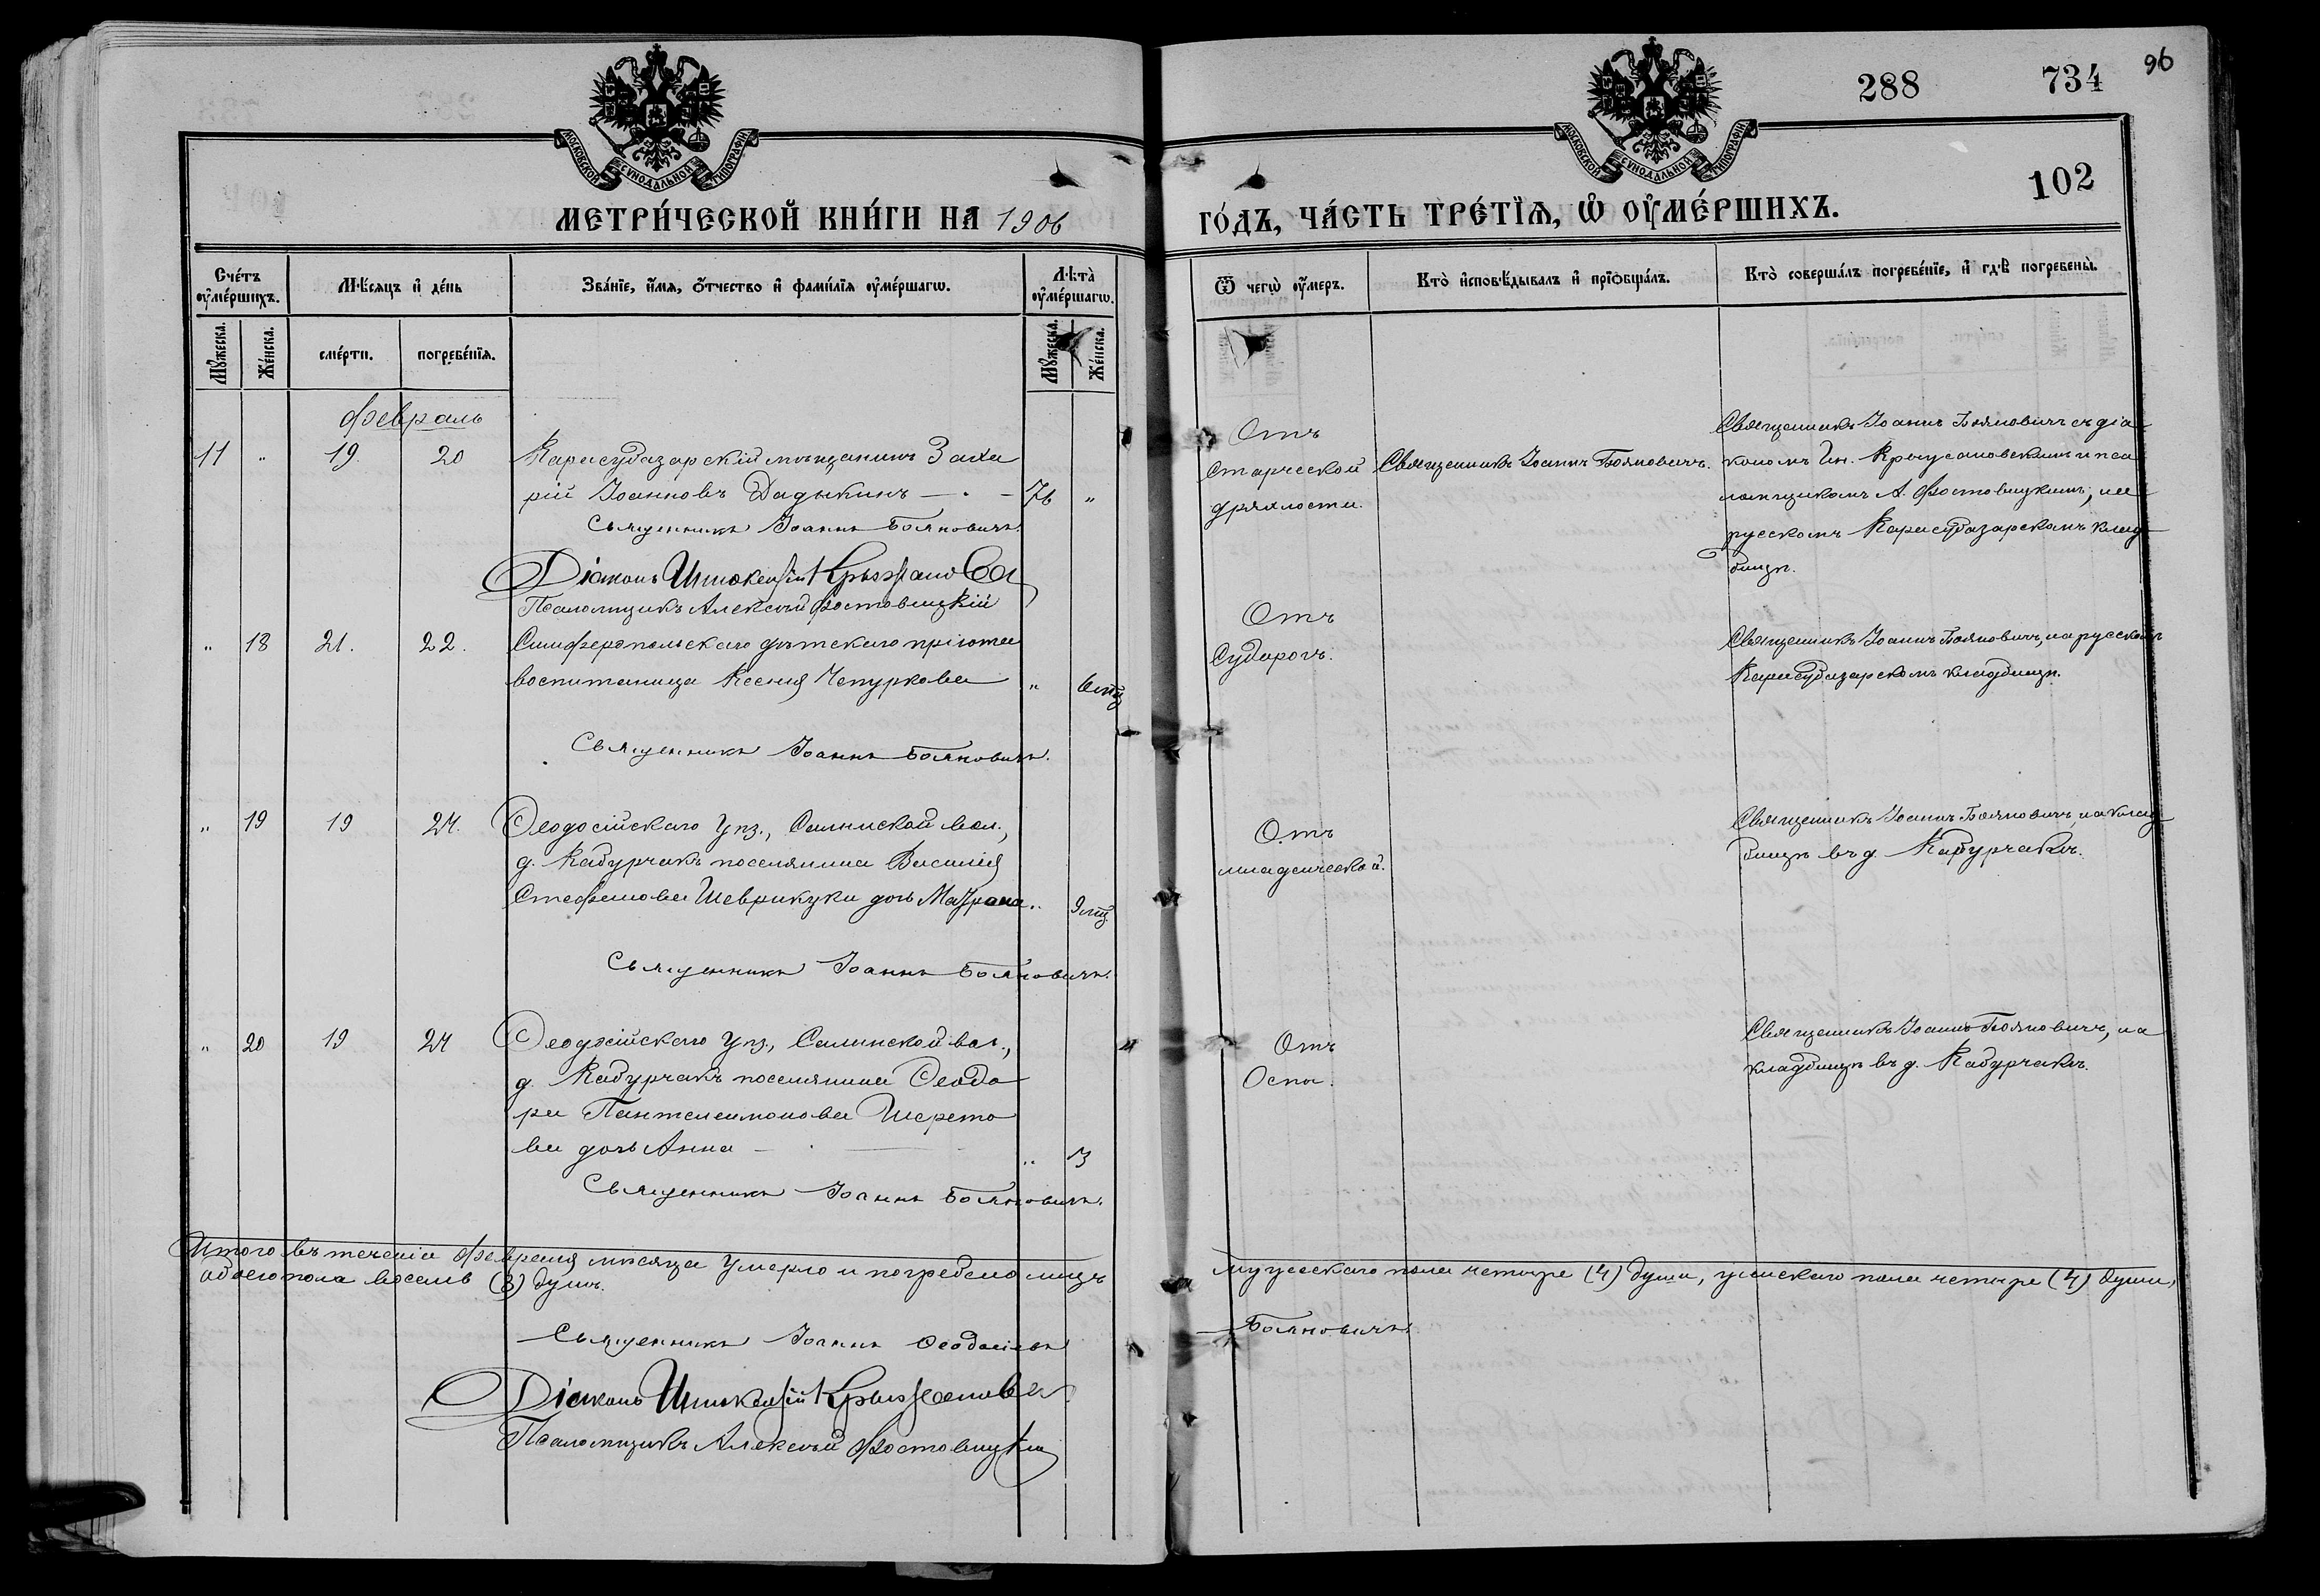 96
288 734
102
МОСКОВСКОЙ СѴНОДАЛЬНОЙ ТИПОГРАФІИ
МОСКОВСКОЙ СѴНОДАЛЬНОЙ ТИПОГРАФІИ
МЕТРИ́ЧЕСКОЙ КНИ́ГИ НА 1906
ГО́ДЪ, ЧА́СТЬ ТРЕ́ТІѦ, Ѡ҆ ОУ҆МЕ́РШИХЪ.
Сче́тъ оу҆ме́ршихъ.
Мѣ́сяцъ и҆ де́нь
Зва́нїе, и҆́мя, ѻ҆́тчество и҆ фами́лїя оу҆ме́ршагѡ.
Лѣ́та оу҆ме́ршагѡ.
Ѿ чегѡ̀ оу҆́меръ.
Кто̀ и҆сповѣ́дывалъ и҆ прїѡбща́лъ.
Кто̀ соверша́лъ погребе́нїе, и҆ гдѣ̀ погребены̀.
Мꙋ́жеска. Же́нска. сме́рти. погребе́нїя. Мꙋ́жеска. Же́нска.
Февраль
11 " 19 20 Карасубазарскій мѣщанинъ Заха
рій Іоанновъ Дадыкинъ — 76 "
Священникъ Іоаннъ Бояновичъ.
Діаконъ Иннокентій
Псаломщикъ Алексѣй Фостовицкій
Отъ
старческой
дряхлости.
Священникъ Іоаннъ Бояновичъ.
Священникъ Іоаннъ Бояновичъ съ діа
кономъ Ин. и пса
ломщикомъ А. Фостовицкимъ, на
русскомъ Карасубазарскомъ клад
бищѣ.
" 18 21. 22. Симферопольскаго дѣтскаго пріюта
воспитаница Ксенія Чепуркова " 6 мц
Священникъ Іоаннъ Бояновичъ.
Отъ
Судорогъ.
Священникъ Іоаннъ Бояновичъ, на русскомъ
Карасубазарскомъ кладбищѣ.
" 19 19 24. Ѳеодосійскаго уѣз., Салынской вол.,
д. Кабурчакъ поселянина Василія
Стефанова Шеврикуки дочь Матрона " 9 мц
Священникъ Іоаннъ Бояновичъ.
Отъ
младенческой.
Священникъ Іоаннъ Бояновичъ, на клад
бищѣ въ д. Кабурчакъ.
" 20 19 24 Ѳеодосійскаго уѣз., Салынской вол.,
д. Кабурчакъ поселянина Ѳеодо
ра Пантелеимонова Шерето
ва дочь Анна — " 3
Священникъ Іоаннъ Бояновичъ.
Отъ
Оспы.
Священникъ Іоаннъ Бояновичъ, на
кладбищѣ въ д. Кабурчакъ.
Итого въ теченіи февраля мѣсяца умерло и погребено лицъ мужескаго пола четыре (4) души, женскаго пола четыре (4) души,
обоего пола восемь (8) душъ.
Священникъ Іоаннъ Ѳеодосіевъ Бояновичъ.
Діаконъ Иннокентій
Псаломщикъ Алексѣй Фостовицкій